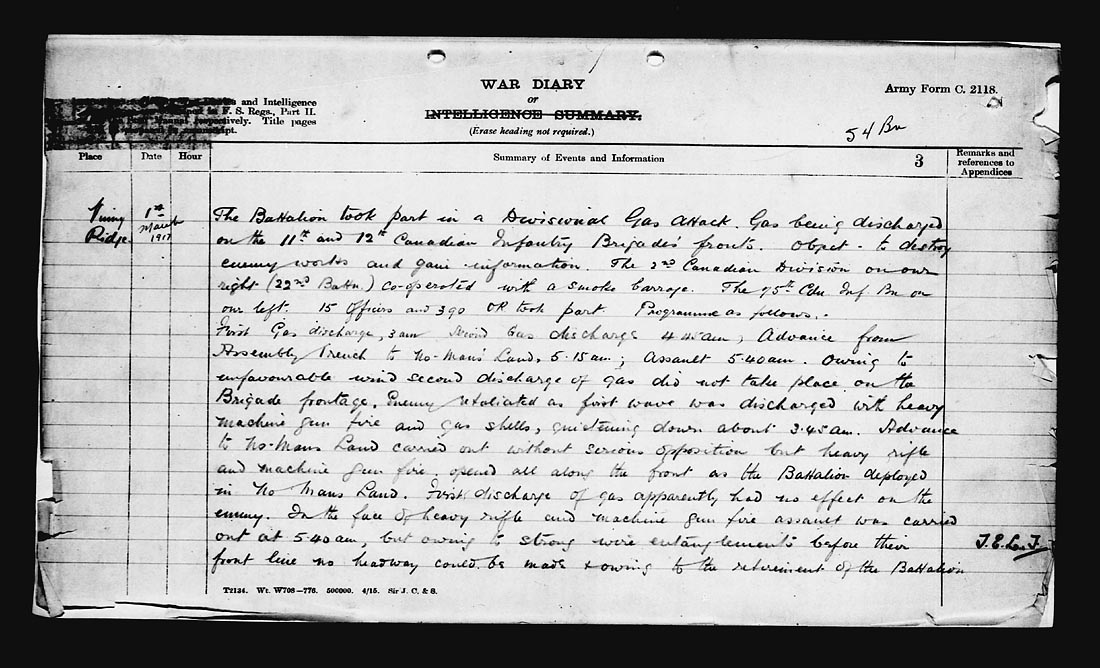 WAR DIARY
or
INTELLIGENCE SUMMARY.
(Erase heading not required.)
Army Form C. 2118.
54 Bn
and Intelligence
F. S. Regs., Part II.
respectively. Title pages
Place Date Hour Summary of Events and Information 3 Remarks and
references to
Appendices
Vimy
Ridge
1st
March
1917
The Battalion took part in a Divisional Gas Attack. Gas being discharged
on the 11th and 12th Canadian Infantry Brigades fronts. Object - to destroy
enemy works and gain information. The 2nd Canadian Division on our
right (22nd Battn.) co-operated with a smoke barrage. The 75th Cdn Inf Bn on
our left. 15 Officers and 390 OR took part. Programme as follows:-
First Gas discharge, 3 am Second Gas discharge 4.45am, Advance from
Assembly Trench to No-Mans Land, 5.15 am; Assault 5.40am. Owing to
unfavourable wind second discharge of gas did not take place on the
Brigade frontage. Enemy retaliated as first wave was discharged with heavy
machine gun fire and gas shells, quietening down about 3.45am. Advance
to No-Mans Land carried out without serious opposition but heavy rifle
and machine gun fire opened all along the front as the Battalion deployed
in No Mans Land. First discharge of gas apparently had no effect on the
enemy. In the face of heavy rifle and machine gun fire assault was carried
out at 5.40am, but owing to strong wire entanglements before their
front line no headway could be made & owing to the retirement of the Battalion
T2134. Wt. W708-776. 500000. 4/15. Sir J. C. & S.